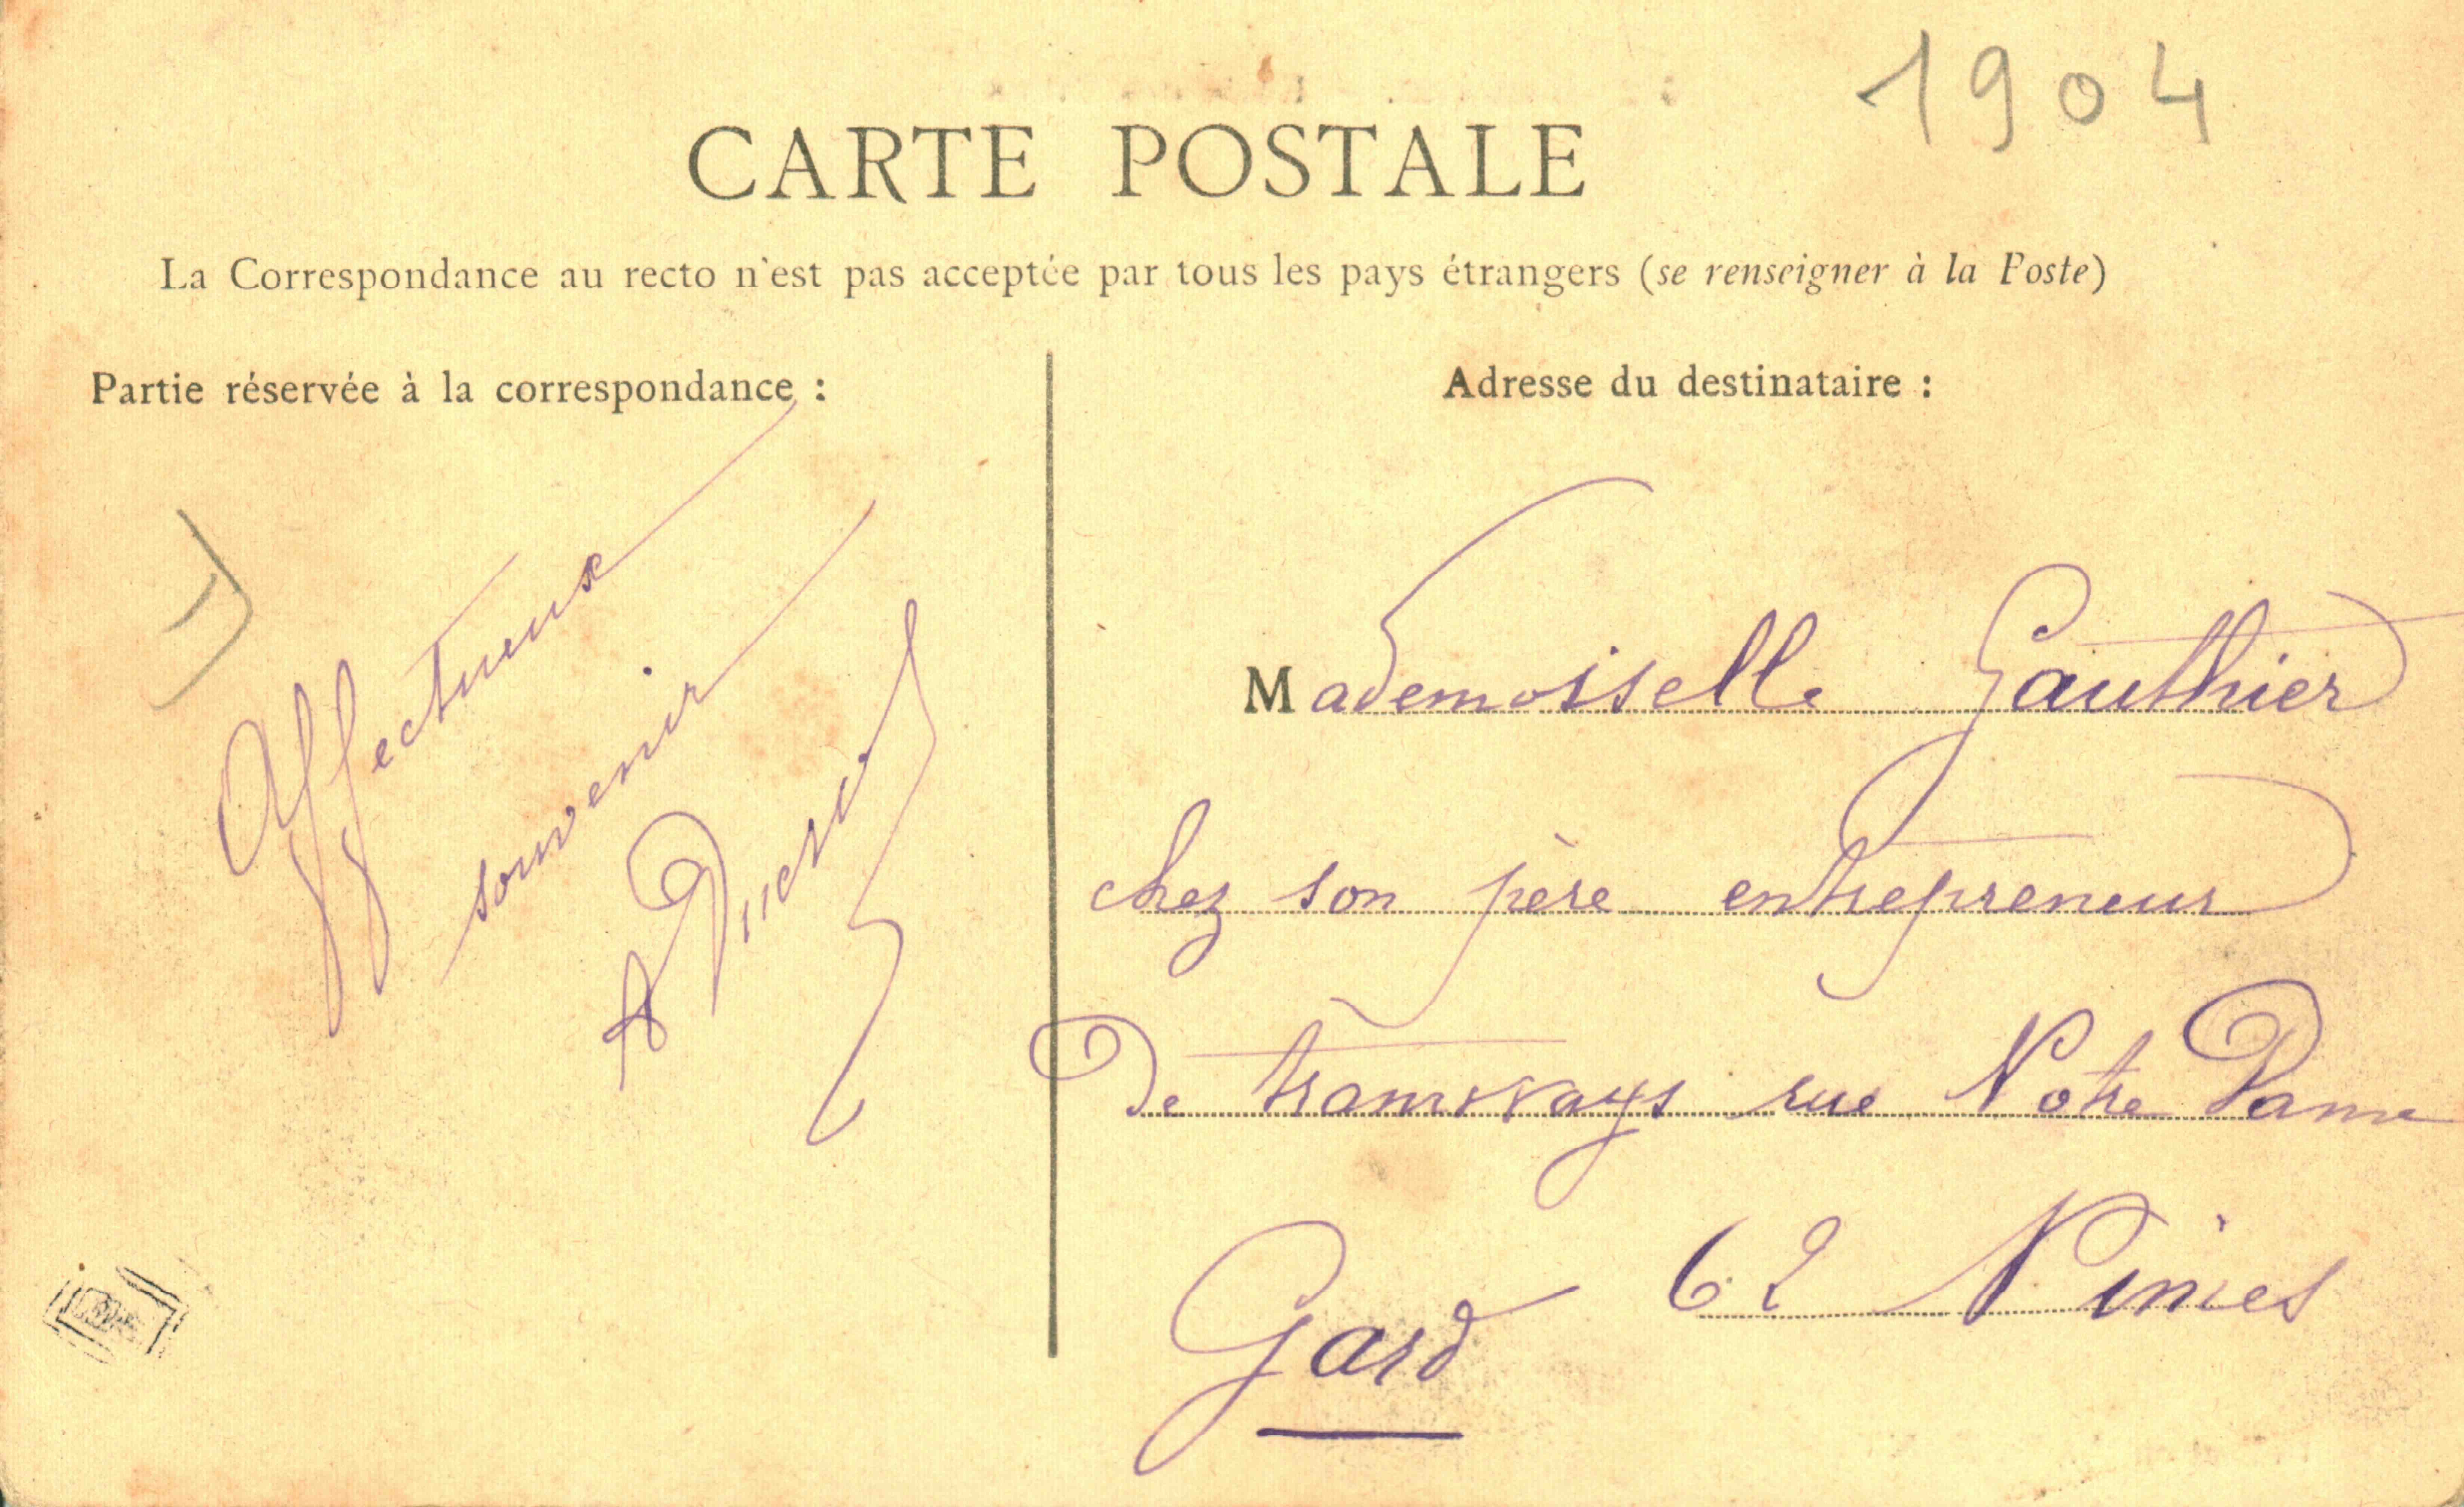 1904
CARTE POSTALE
La Correspondance au recto n'est pas acceptée par tous les pays étrangers (se renseigner à la Poste)
Partie réservée à la correspondance :
Adresse du destinataire :
Affectueux
souvenir
A
Mademoiselle Gauthier
chez son père entrepreneur
De tramways rue Notre Dame
62 Nimes
Gard